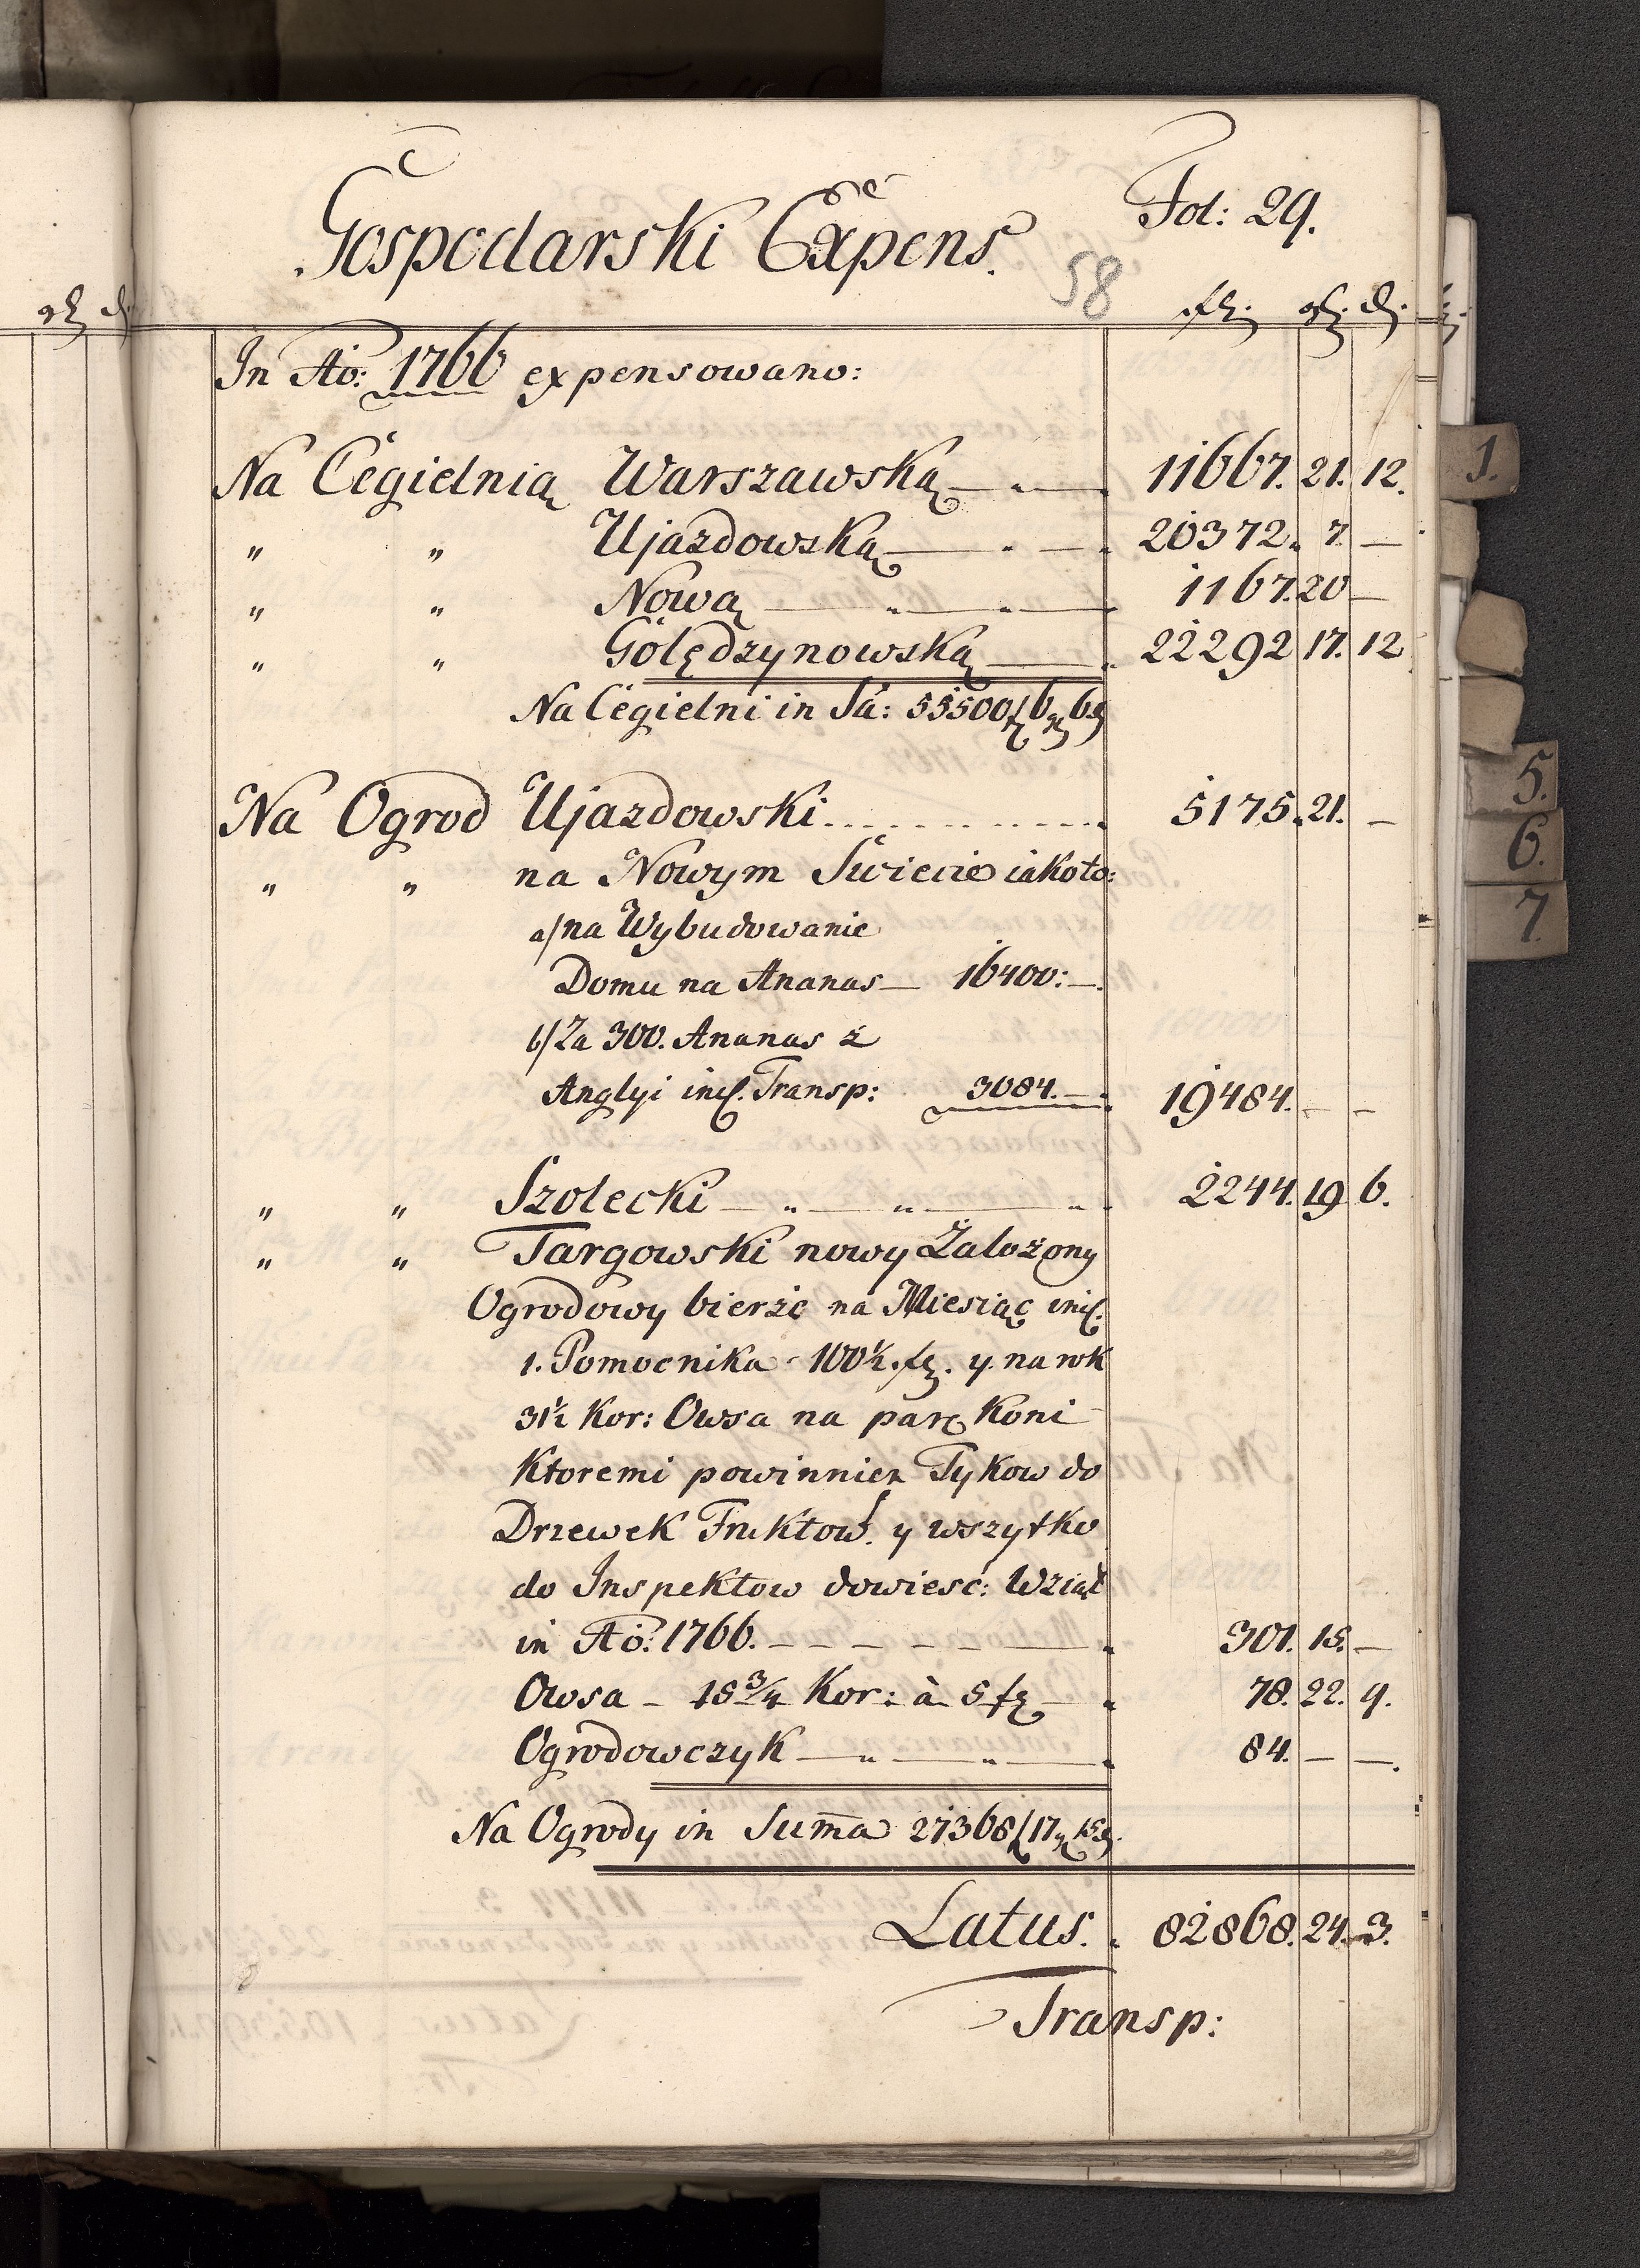 Fol: 29.
Gospodarski Expens.
58
fl. gr. d.
gr d.
In Ao: 1766 expensowano:
Na Cegielnią Warszawską 11667. 21. 12.
" " Ujazdowską 20372. 7 —
" " Nową 1167. 20 —
" " Golędzynowską 22292 17. 12
Na Cegielni in Sa: 55500 f 6 gr 6 d
Na Ogrod Ujazdowski 5175. 21. —
" " na Nowym Swiecie iakoto:
a/ na Wybudowanie
Domu na Ananas — 16400: —
b/ Za 300. Ananas z
Anglyi incl. Transp: 3084. — 19484. — —
" " Szolecki 2244. 19 6.
" " Targowski nowy Założony
Ogrodowy bierze na Miesiąc incl.
1. Pomocnika 100½ fl. y na rok
31½ Kor: Owsa na parę Koni
Ktoremi powinnien Tykow do
Drzewek Fruktow. y wszytko
do Inspektow dowiesć: Wziął
in Ao: 1766. 301. 15. —
Owsa – 15¾ Kor: à 5 fl 78. 22. 9.
Ogrodowczyk 84. — —.
Na Ogrody in Suma 27368 f 17 gr 15 d.
Latus. 82868. 24. 3.
Transp:
1.
5.
6.
7.